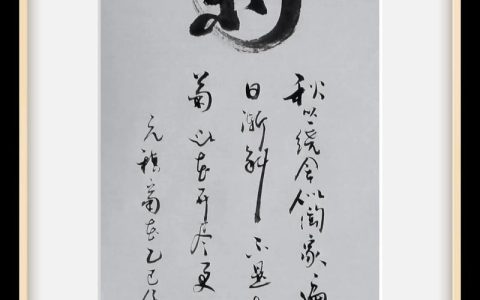 秋丛绕舍似陶家遍
日渐斜不是
菊此花开尽更
元稹菊花乙巳